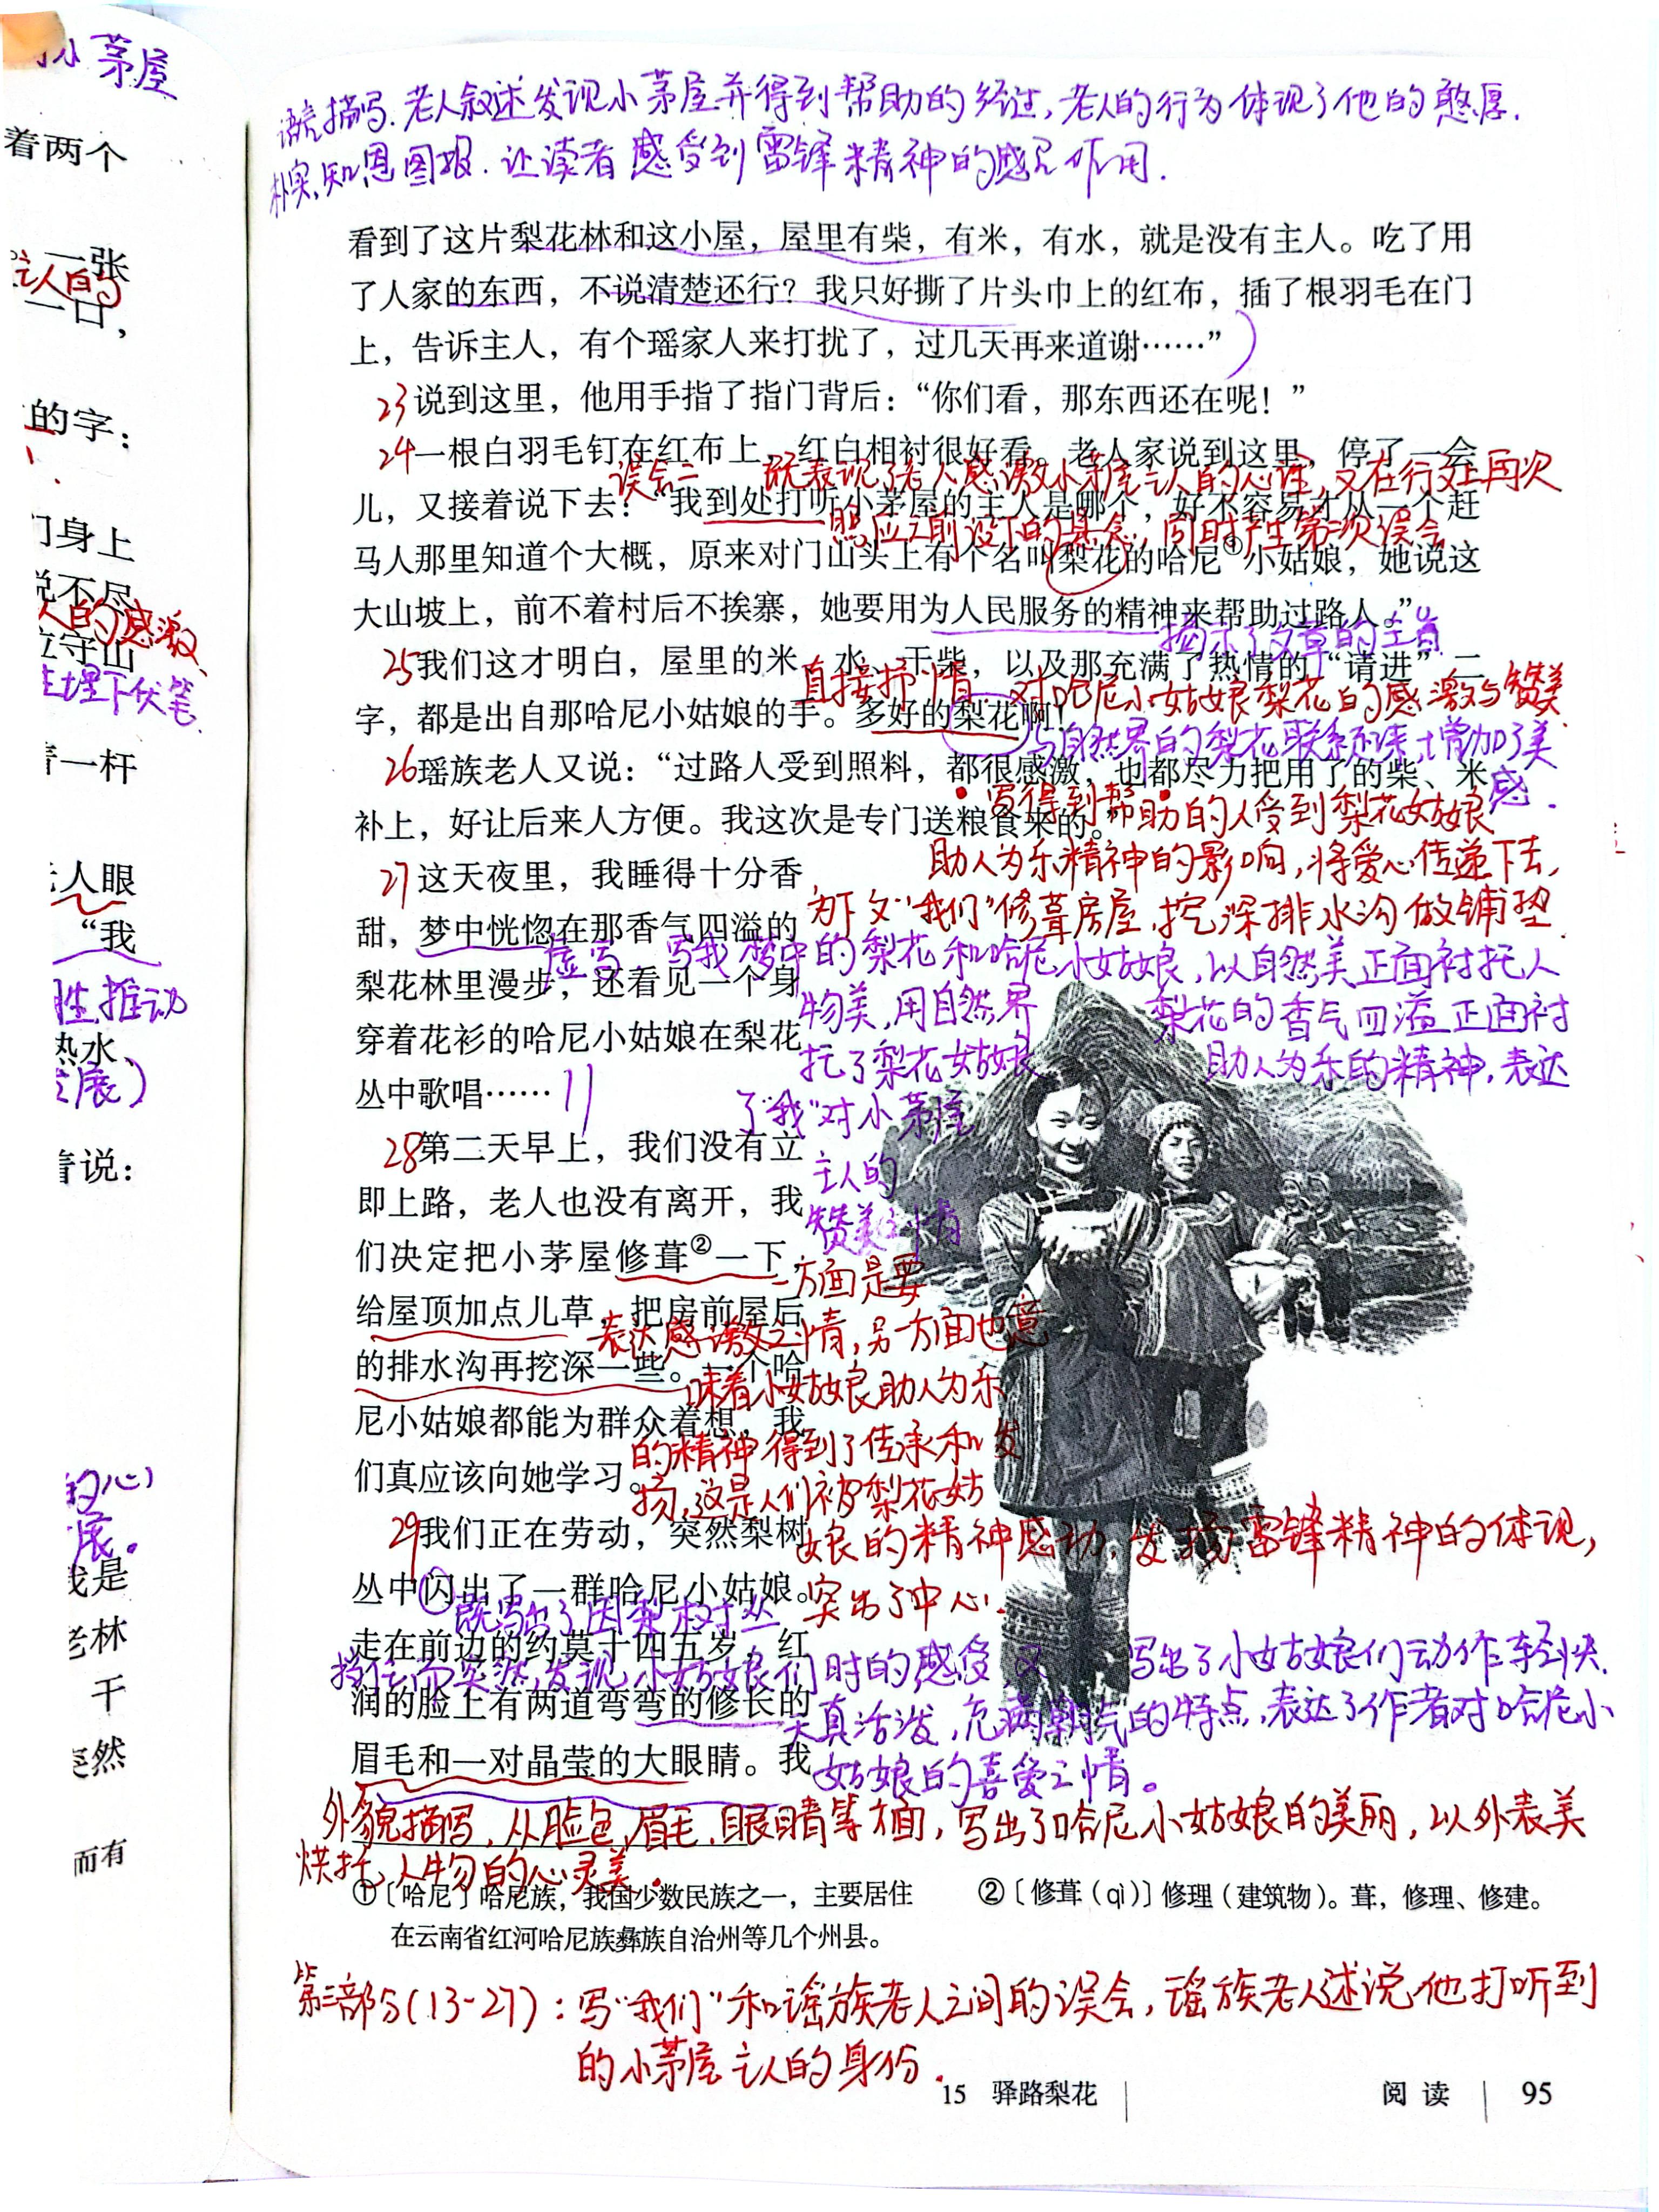 小茅屋
着两个
一张
主人的
一口，
的字：
们身上
说不尽
人的感激、
立守山
埋下伏笔.
着一杆
人眼
“我
性,推动
热水、
展）
着说：
的心
展。
我是
老林
干
突然
而有
语言描写.老人叙述发现小茅屋并得到帮助的经过,老人的行为体现了他的憨厚.
朴实,知恩图报.让读者感受到雷锋精神的感召作用.
看到了这片梨花林和这小屋，屋里有柴，有米，有水，就是没有主人。吃了用
了人家的东西，不说清楚还行？我只好撕了片头巾上的红布，插了根羽毛在门
上，告诉主人，有个瑶家人来打扰了，过几天再来道谢……”
23说到这里，他用手指了指门背后：“你们看，那东西还在呢！”
24一根白羽毛钉在红布上，红白相衬很好看。老人家说到这里，停了一会
误会二 既表现了老人感激小茅屋主人的心理,又在行文上再次
儿，又接着说下去：“我到处打听小茅屋的主人是哪个，好不容易才从一个赶
照应之前设下的悬念,同时产生第二次误会
马人那里知道个大概，原来对门山头上有个名叫梨花的哈尼①小姑娘，她说这
大山坡上，前不着村后不挨寨，她要用为人民服务的精神来帮助过路人。”
揭示了文章的主旨
25我们这才明白，屋里的米、水、干柴，以及那充满了热情的“请进”二
直接抒情 对哈尼小姑娘梨花的感激与赞美
字，都是出自那哈尼小姑娘的手。多好的梨花啊！
与自然界的梨花联系起来,增加了美
感.
26瑶族老人又说：“过路人受到照料，都很感激，也都尽力把用了的柴、米
写得到帮助的人受到梨花姑娘
补上，好让后来人方便。我这次是专门送粮食来的。”
助人为乐精神的影响,将爱心传递下去,
27这天夜里，我睡得十分香
为下文“我们”修葺房屋,挖深排水沟做铺垫.
甜，梦中恍惚在那香气四溢的
虚写 写我梦中的梨花和哈尼小姑娘,以自然美正面衬托人
梨花林里漫步，还看见一个身
物美,用自然界梨花的香气四溢正面衬
穿着花衫的哈尼小姑娘在梨花
托了梨花姑娘助人为乐的精神,表达
丛中歌唱……
了“我”对小茅屋
28第二天早上，我们没有立
主人的
即上路，老人也没有离开，我
赞美之情
们决定把小茅屋修葺②一下，
一方面是要
给屋顶加点儿草，把房前屋后
表达感激之情,另一方面也意
的排水沟再挖深一些。一个哈
味着小姑娘助人为乐
尼小姑娘都能为群众着想，我
的精神得到了传承和发
们真应该向她学习。
扬,这是人们被梨花姑
29我们正在劳动，突然梨树
娘的精神感动,发扬雷锋精神的体现,
丛中闪出了一群哈尼小姑娘。
突出了中心.
既写出了因梨树丛
走在前边的约莫十四五岁，红
挡住而突然发现小姑娘们时的感受,又写出了小姑娘们动作轻快.
润的脸上有两道弯弯的修长的
天真活泼,充满朝气的特点,表达了作者对哈尼小
眉毛和一对晶莹的大眼睛。我
姑娘的喜爱之情。
外貌描写,从脸色,眉毛,眼睛等方面,写出了哈尼小姑娘的美丽,以外表美
烘托人物的心灵美.
①〔哈尼〕哈尼族，我国少数民族之一，主要居住
在云南省红河哈尼族彝族自治州等几个州县。
②〔修葺（qì）〕修理（建筑物）。葺，修理、修建。
第三部分(13-27)：写“我们”和瑶族老人之间的误会,瑶族老人述说他打听到
的小茅屋主人的身份.
15 驿路梨花
阅读 95